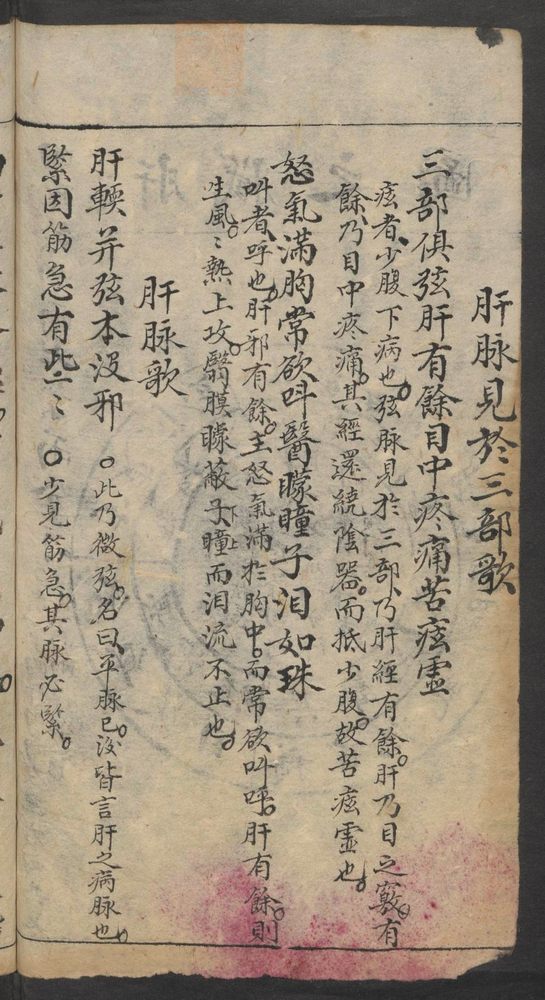 肝脉見於三部歌
三部俱弦肝有餘目中疼痛苦痃虛
痃者、少腹下病也。弦脉見於三部、乃肝經有餘。肝乃目之竅。有
餘、乃目中疼痛。其經還繞陰器。而抵少腹。故苦痃虛也。
怒氣滿胸常欲叫翳矇瞳子泪如珠
叫者、呼也。肝邪有餘。主怒氣滿於胸中。而常欲叫呼。肝有餘。則
生風。〻熱上攻。翳膜矇蔽子瞳而泪流不止也。
肝脉歌
肝軟并弦本沒邪 〇此乃微弦。名曰、平脉。已後皆言肝之病脉也。
緊因筋急有此〻 〇少見筋急。其脉必緊。